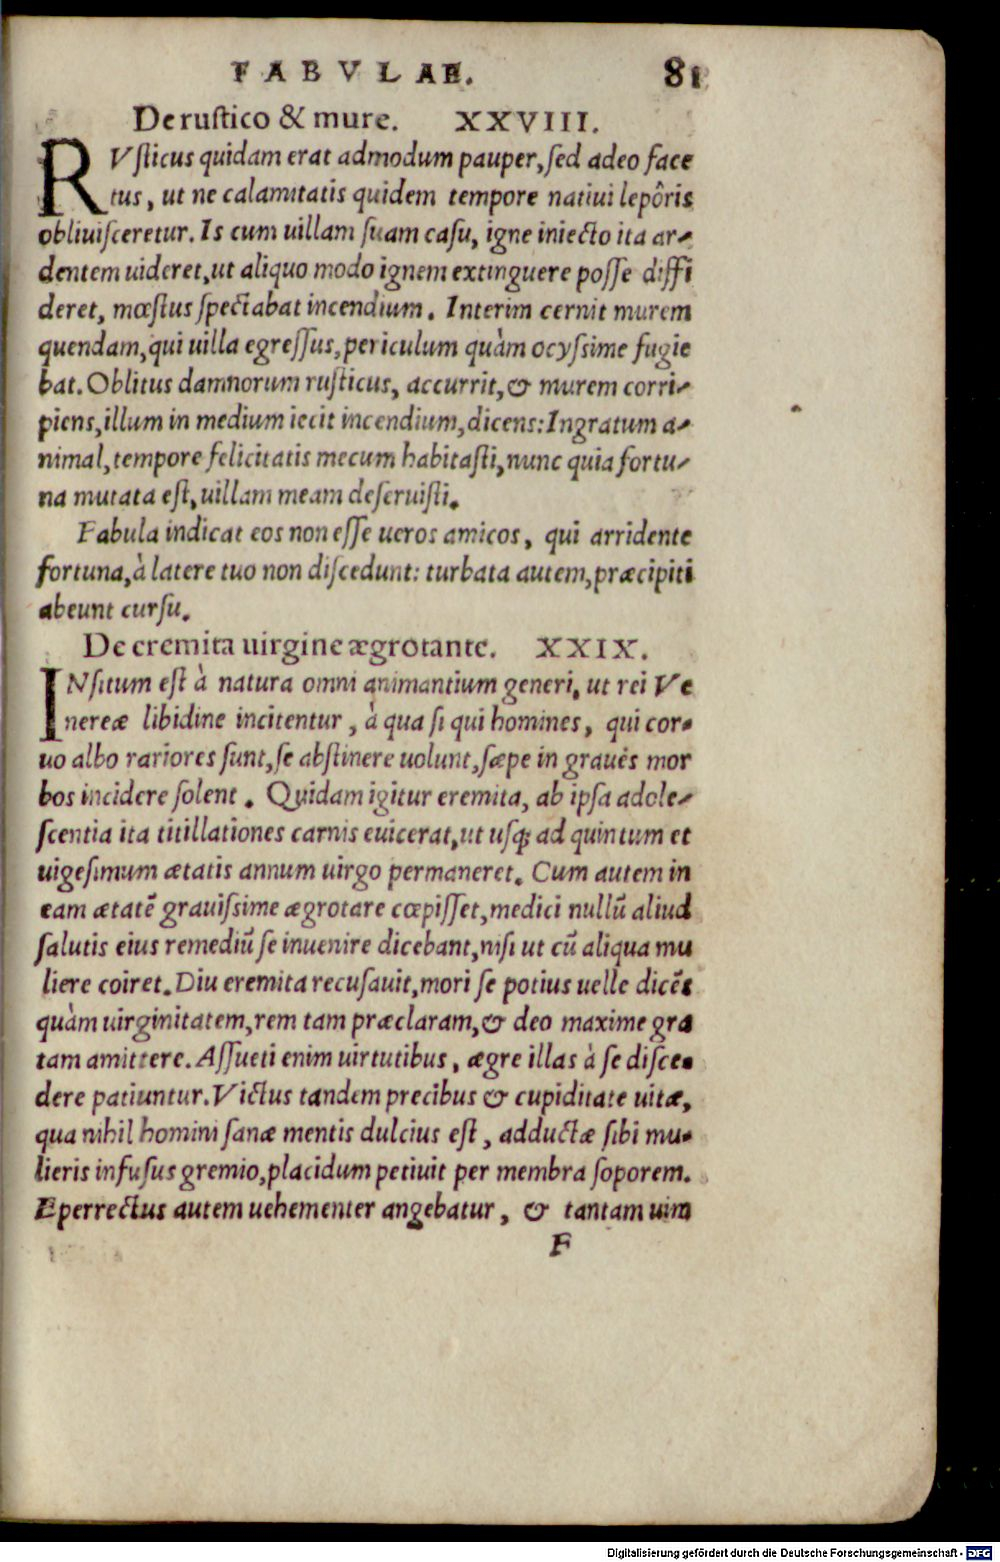 FABVLAE. 81
De rustico & mure. XXVIII.
RVsticus quidam erat admodum pauper, sed adeo face
tus, ut ne calamitatis quidem tempore natiui lepôris
obliuisceretur. Is cum uillam suam casu, igne iniecto ita ar-
dentem uideret, ut aliquo modo ignem extinguere posse diffi
deret, mœstus spectabat incendium. Interim cernit murem
quendam, qui uilla egressus, periculum quàm ocyssime fugie
bat. Oblitus damnorum rusticus, accurrit, & murem corri-
piens, illum in medium iecit incendium, dicens: Ingratum a-
nimal, tempore felicitatis mecum habitasti, nunc quia fortu-
na mutata est, uillam meam deseruisti.
Fabula indicat eos non esse ueros amicos, qui arridente
fortuna, à latere tuo non discedunt: turbata autem, præcipiti
abeunt cursu.
De eremita uirgine ægrotante. XXIX.
INsitum est à natura omni animantium generi, ut rei Ve
nereæ libidine incitentur, à qua si qui homines, qui cor-
uo albo rariores sunt, se abstinere uolunt, sæpe in graues mor
bos incidere solent. Quidam igitur eremita, ab ipsa adole-
scentia ita titillationes carnis euicerat, ut usq; ad quintum et
uigesimum ætatis annum uirgo permaneret. Cum autem in
eam ætatẽ grauissime ægrotare cœpisset, medici nullũ aliud
salutis eius remediũ se inuenire dicebant, nisi ut cũ aliqua mu
liere coiret. Diu eremita recusauit, mori se potius uelle dicẽs
quàm uirginitatem, rem tam præclaram, & deo maxime gra
tam amittere. Assueti enim uirtutibus, ægre illas à se disce-
dere patiuntur. Victus tandem precibus & cupiditate uitæ,
qua nihil homini sanæ mentis dulcius est, adductæ sibi mu-
lieris infusus gremio, placidum petiuit per membra soporem.
Eperrectus autem uehementer angebatur, & tantam uim
F
Digitalisierung gefördert durch die Deutsche Forschungsgemeinschaft - DFG